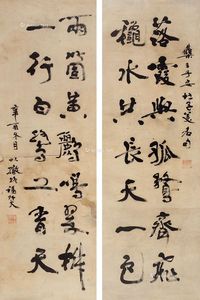 集王子安杜子美句
落霞與孤鶩齊飛
龝水共長天一色
兩箇黃鸝鳴翠柳
一行白鷺上青天
辛酉冬月